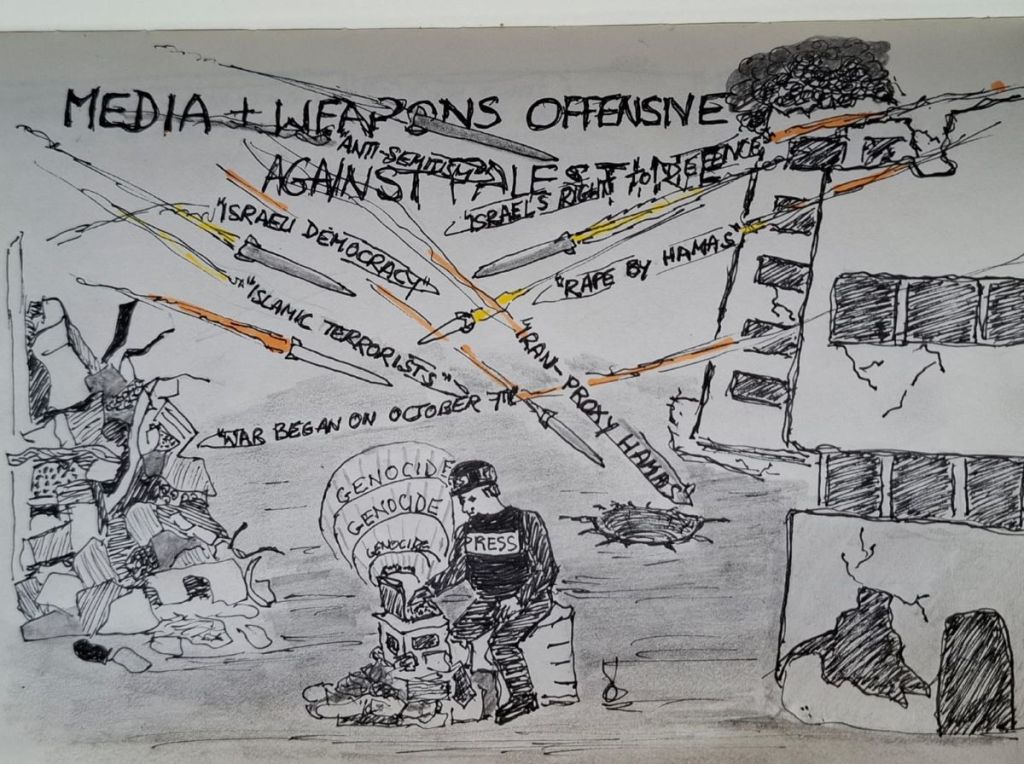 MEDIA + WEAPONS OFFENSIVE
AGAINST PALESTINE
"ANTI-SEMITISM"
"ISRAEL'S RIGHT TO DEFENCE"
"ISRAELI DEMOCRACY"
"RAPE BY HAMAS"
"ISLAMIC TERRORISTS"
"IRAN-PROXY HAMAS"
"WAR BEGAN ON OCTOBER 7TH"
GENOCIDE
GENOCIDE
GENOCIDE
PRESS